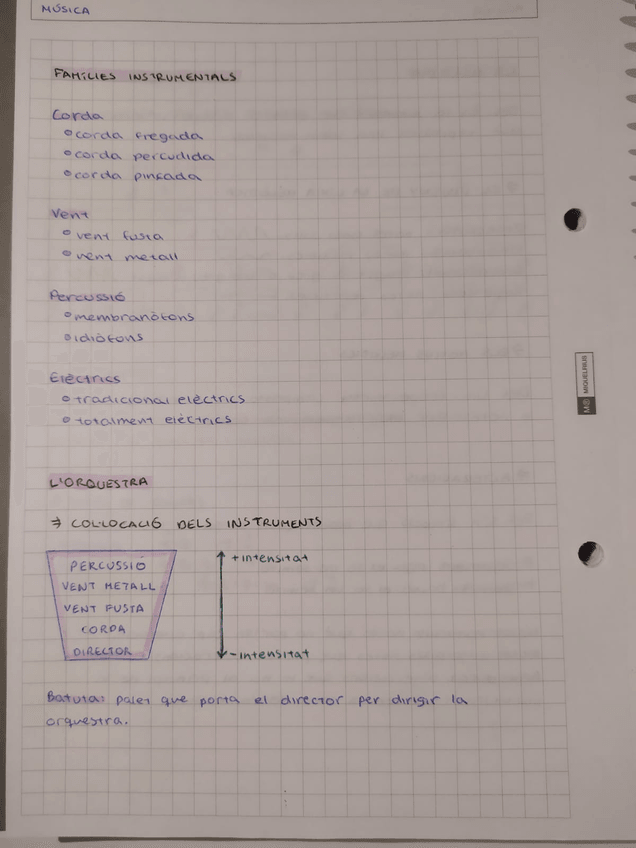 MÚSICA
FAMÍLIES INSTRUMENTALS
Corda
corda fregada
corda percudida
corda pinçada
Vent
vent fusta
vent metall
Percussió
membranòfons
idiòfons
Elèctrics
tradicional elèctrics
totalment elèctrics
L'ORQUESTRA
⇒ COL·LOCACIÓ DELS INSTRUMENTS
PERCUSSIÓ
VENT METALL
VENT FUSTA
CORDA
DIRECTOR
+ intensitat
- intensitat
Batuta: palet que porta el director per dirigir la
orquestra.
MIQUELRIUS